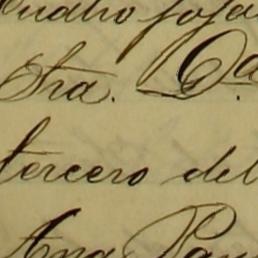 Cuatro fojas
Sra. Da.
tercero del
Ana